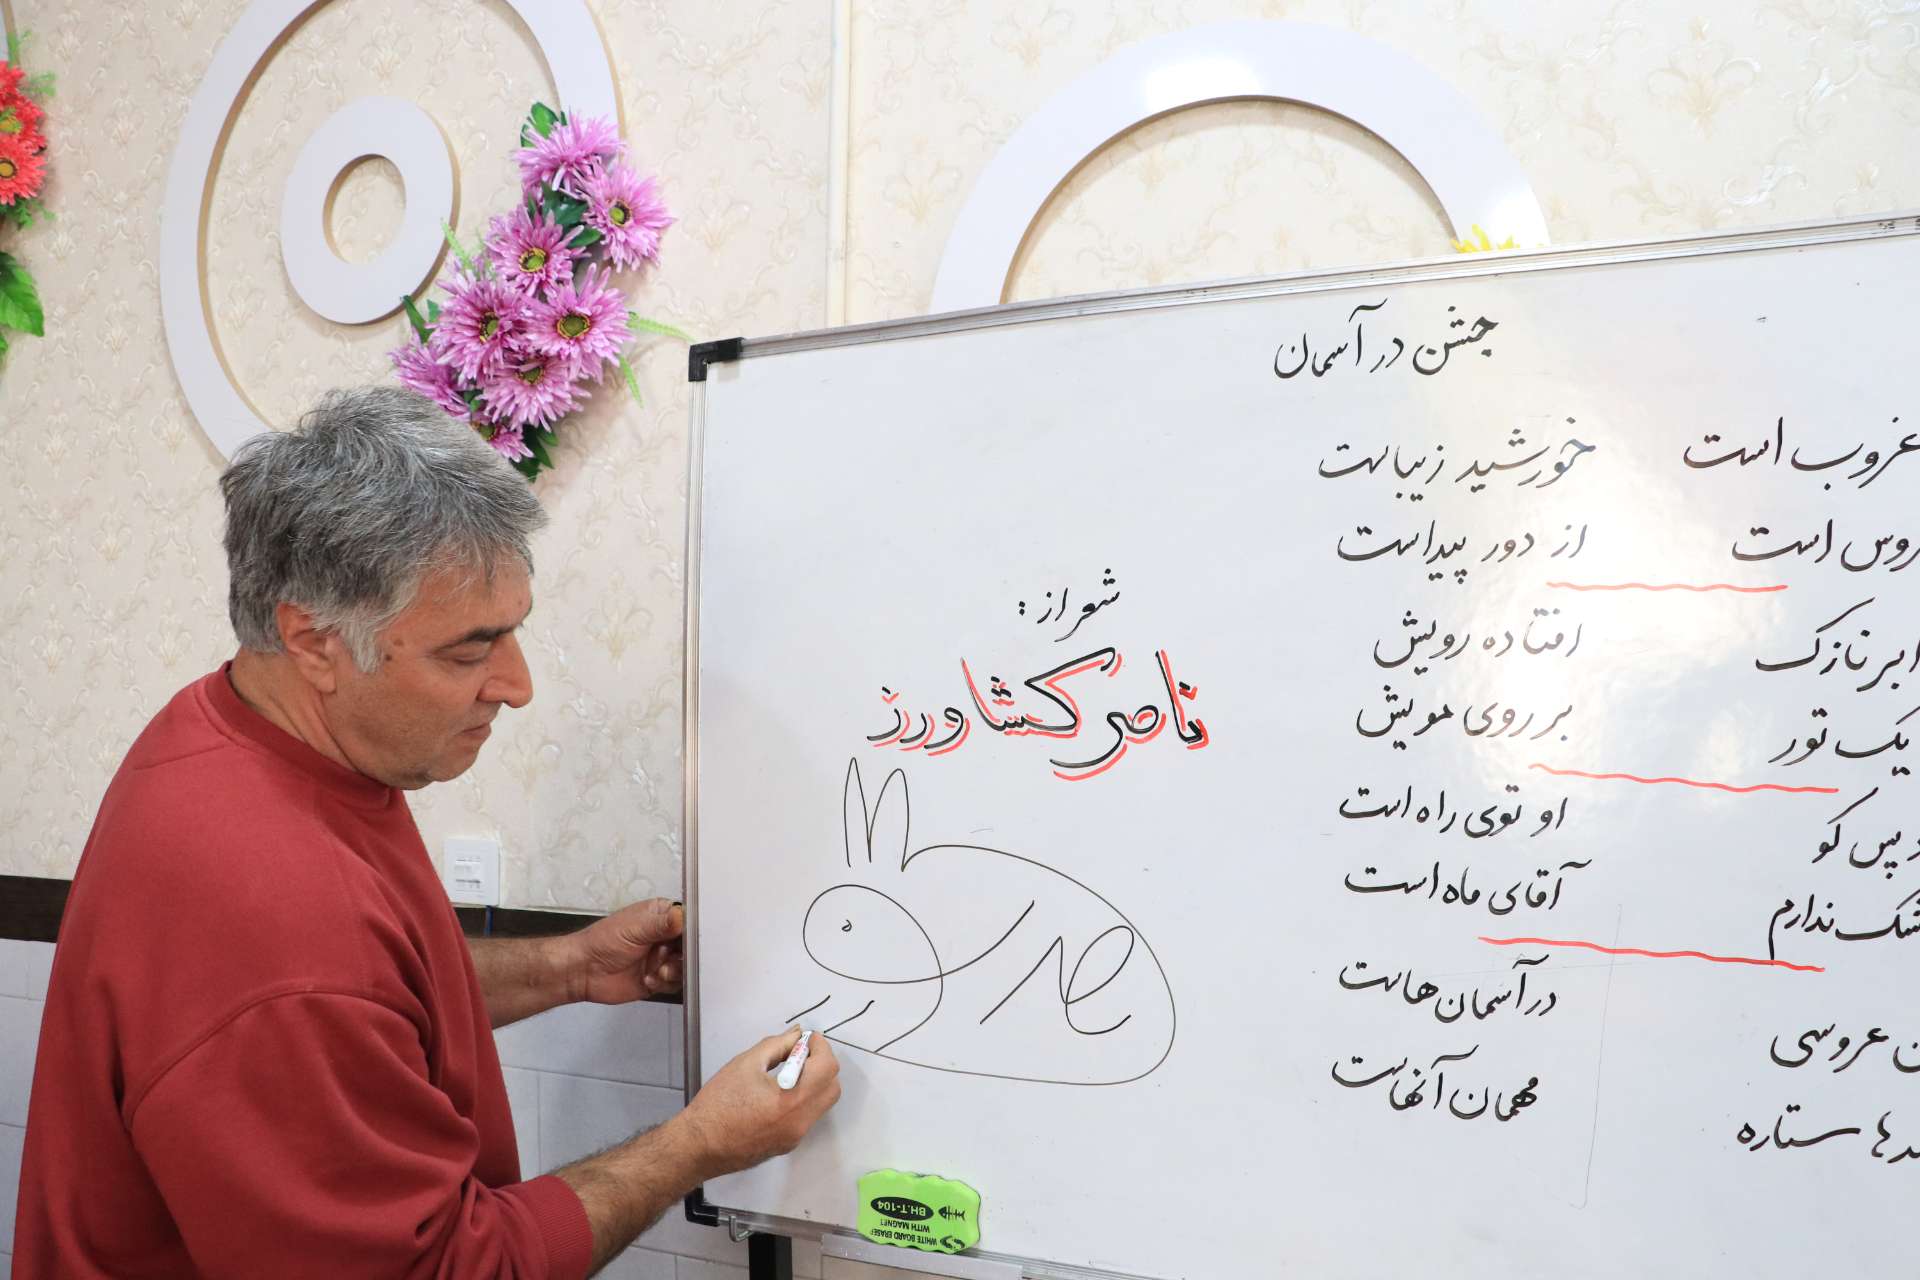 جشن در آسمان
غروب است
خورشید زیباست
است
از دور پیداست
ابر نازک
افتاده رویش
یک تور
بر روی مویش
پس کو
او توی راه است
ندارم
آقای ماه است
عروسی
در آسمان‌هاست
ستاره
مهمان آنهاست
شعر از :
ناصر کشاورز
BH.T-104
WITH MAGNET
WHITE BOARD ERASER